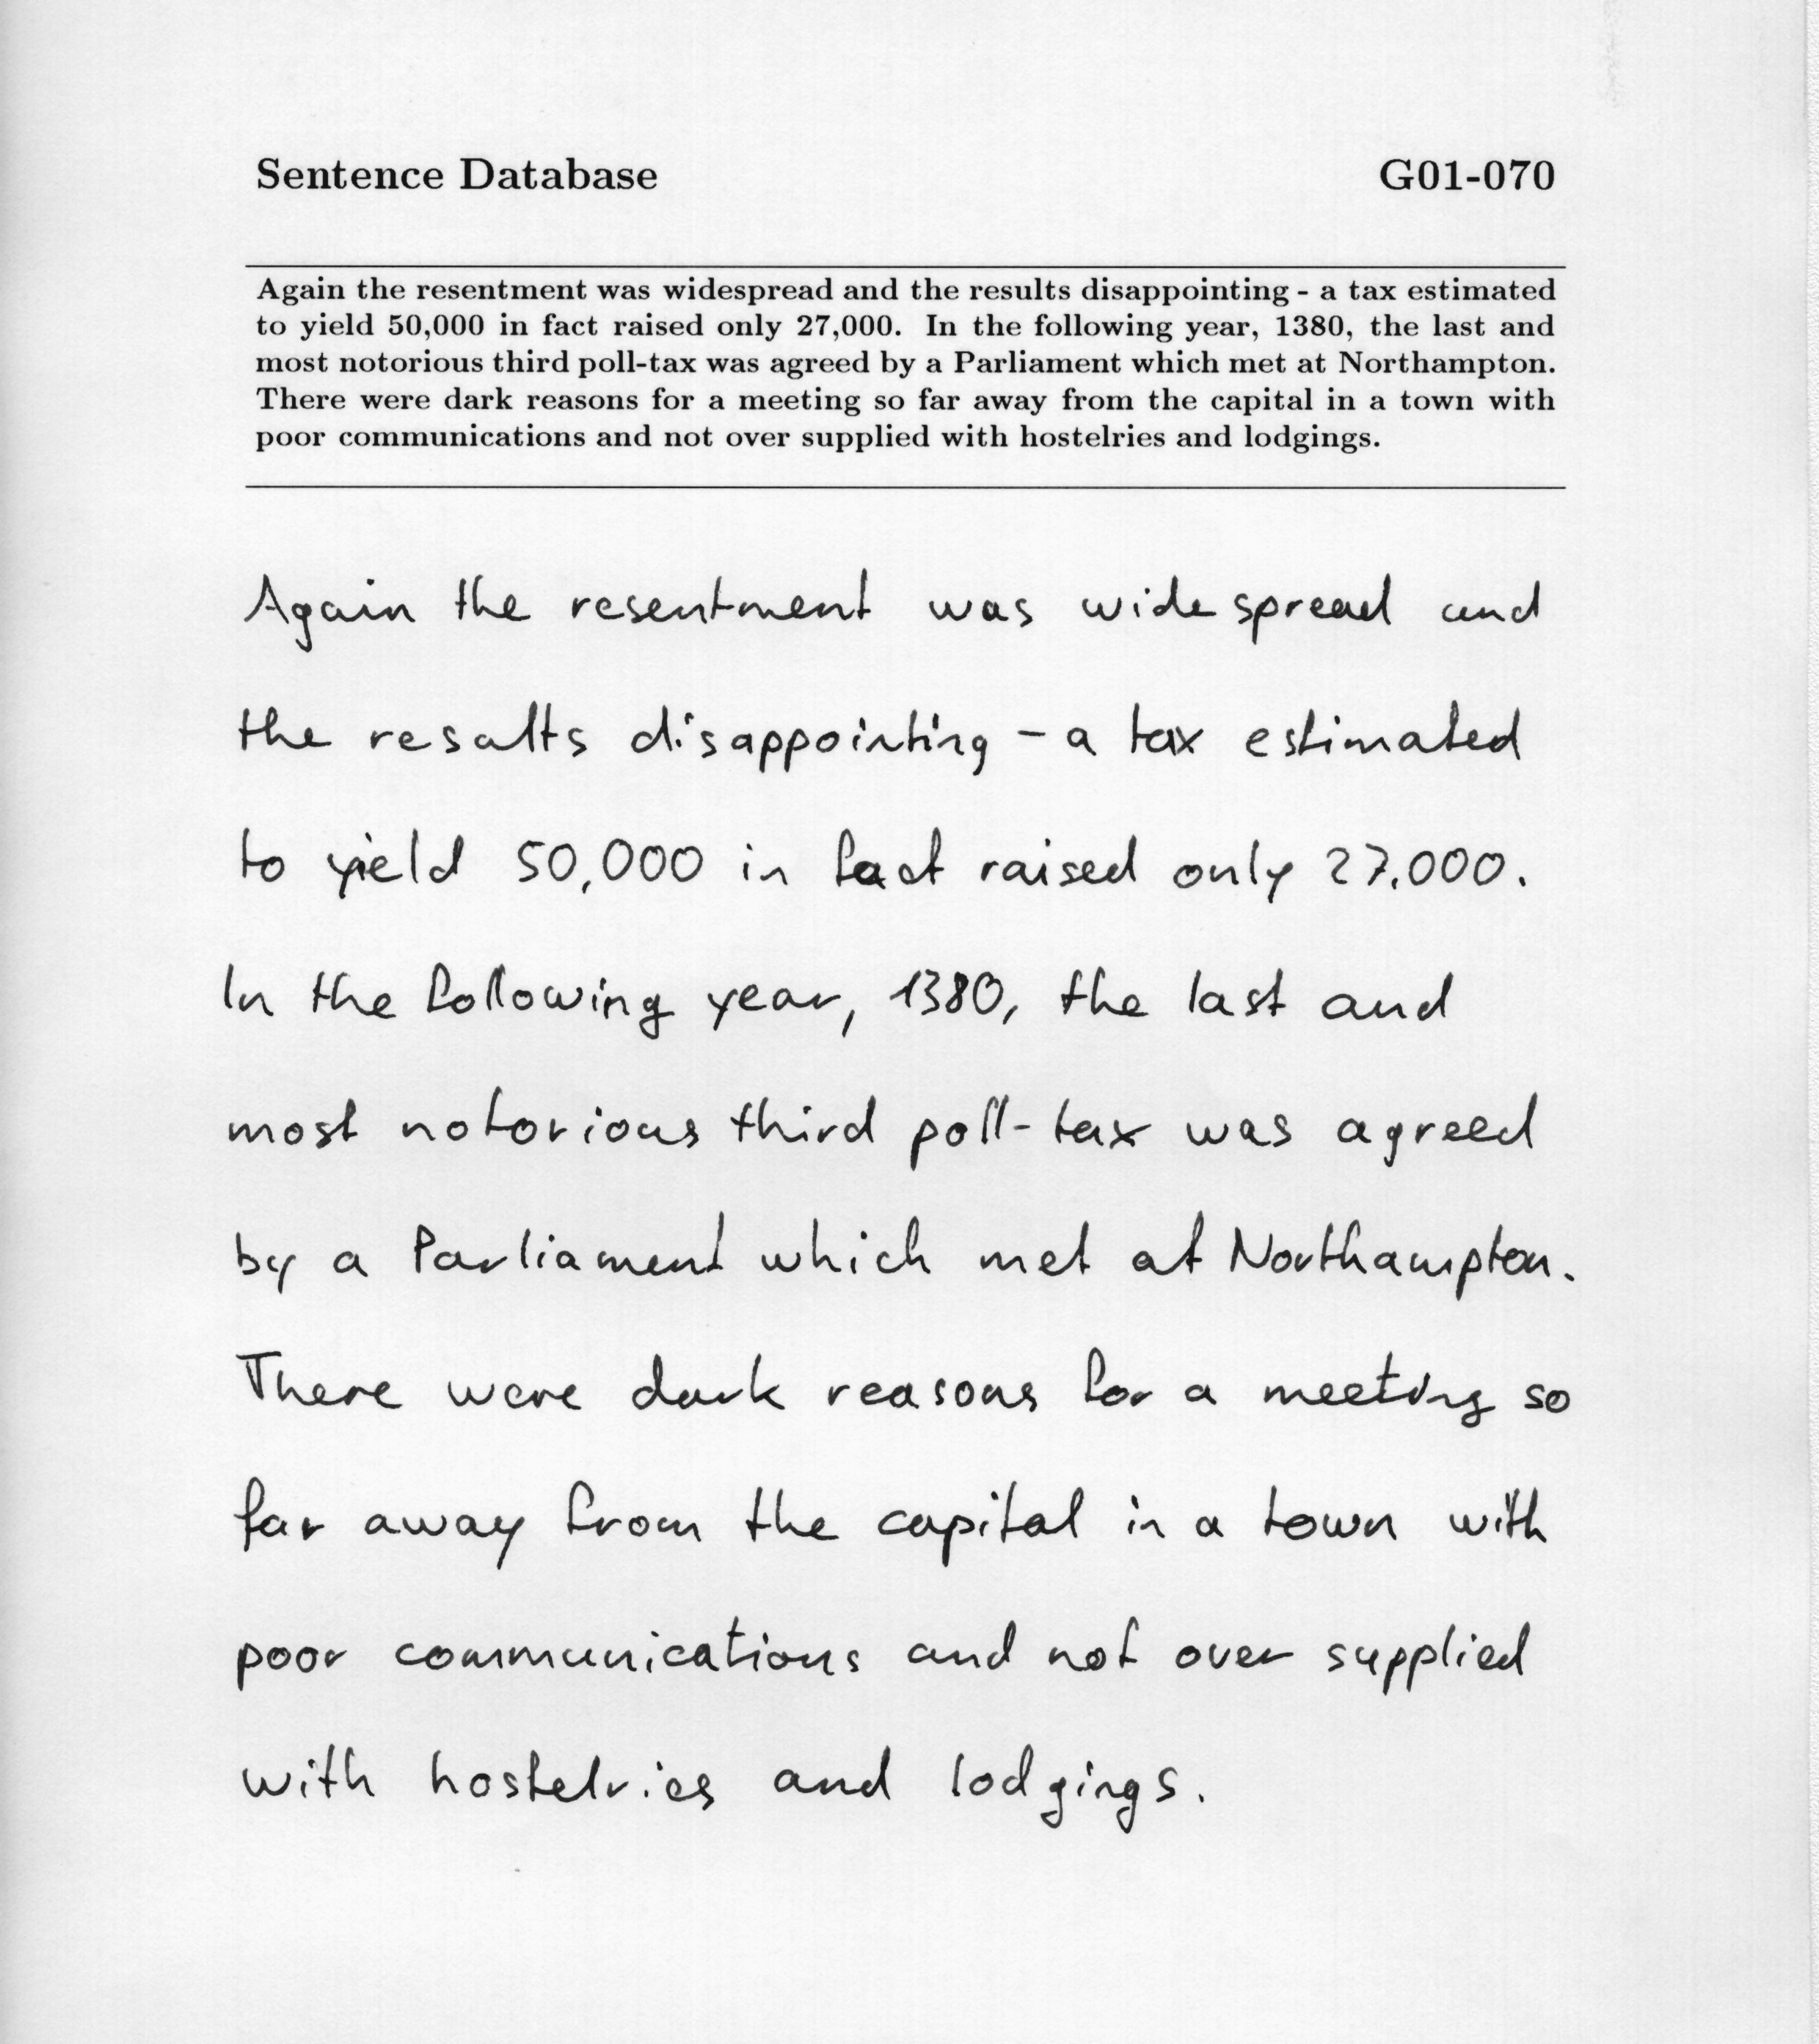 Sentence Database G01-070
Again the resentment was widespread and the results disappointing - a tax estimated
to yield 50,000 in fact raised only 27,000. In the following year, 1380, the last and
most notorious third poll-tax was agreed by a Parliament which met at Northampton.
There were dark reasons for a meeting so far away from the capital in a town with
poor communications and not over supplied with hostelries and lodgings.
Again the resentment was widespread and
the results disappointing - a tax estimated
to yield 50,000 in fact raised only 27,000.
In the following year, 1380, the last and
most notorious third poll-tax was agreed
by a Parliament which met at Northampton.
There were dark reasons for a meeting so
far away from the capital in a town with
poor communications and not over supplied
with hostelries and lodgings.